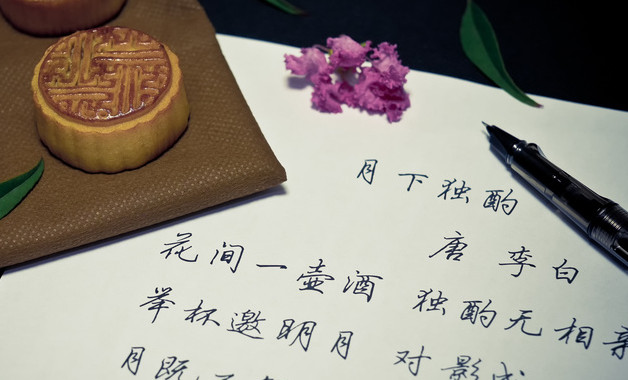 月下独酌
唐 李白
花间一壶酒 独酌无相亲
举杯邀明月 对影成
月既